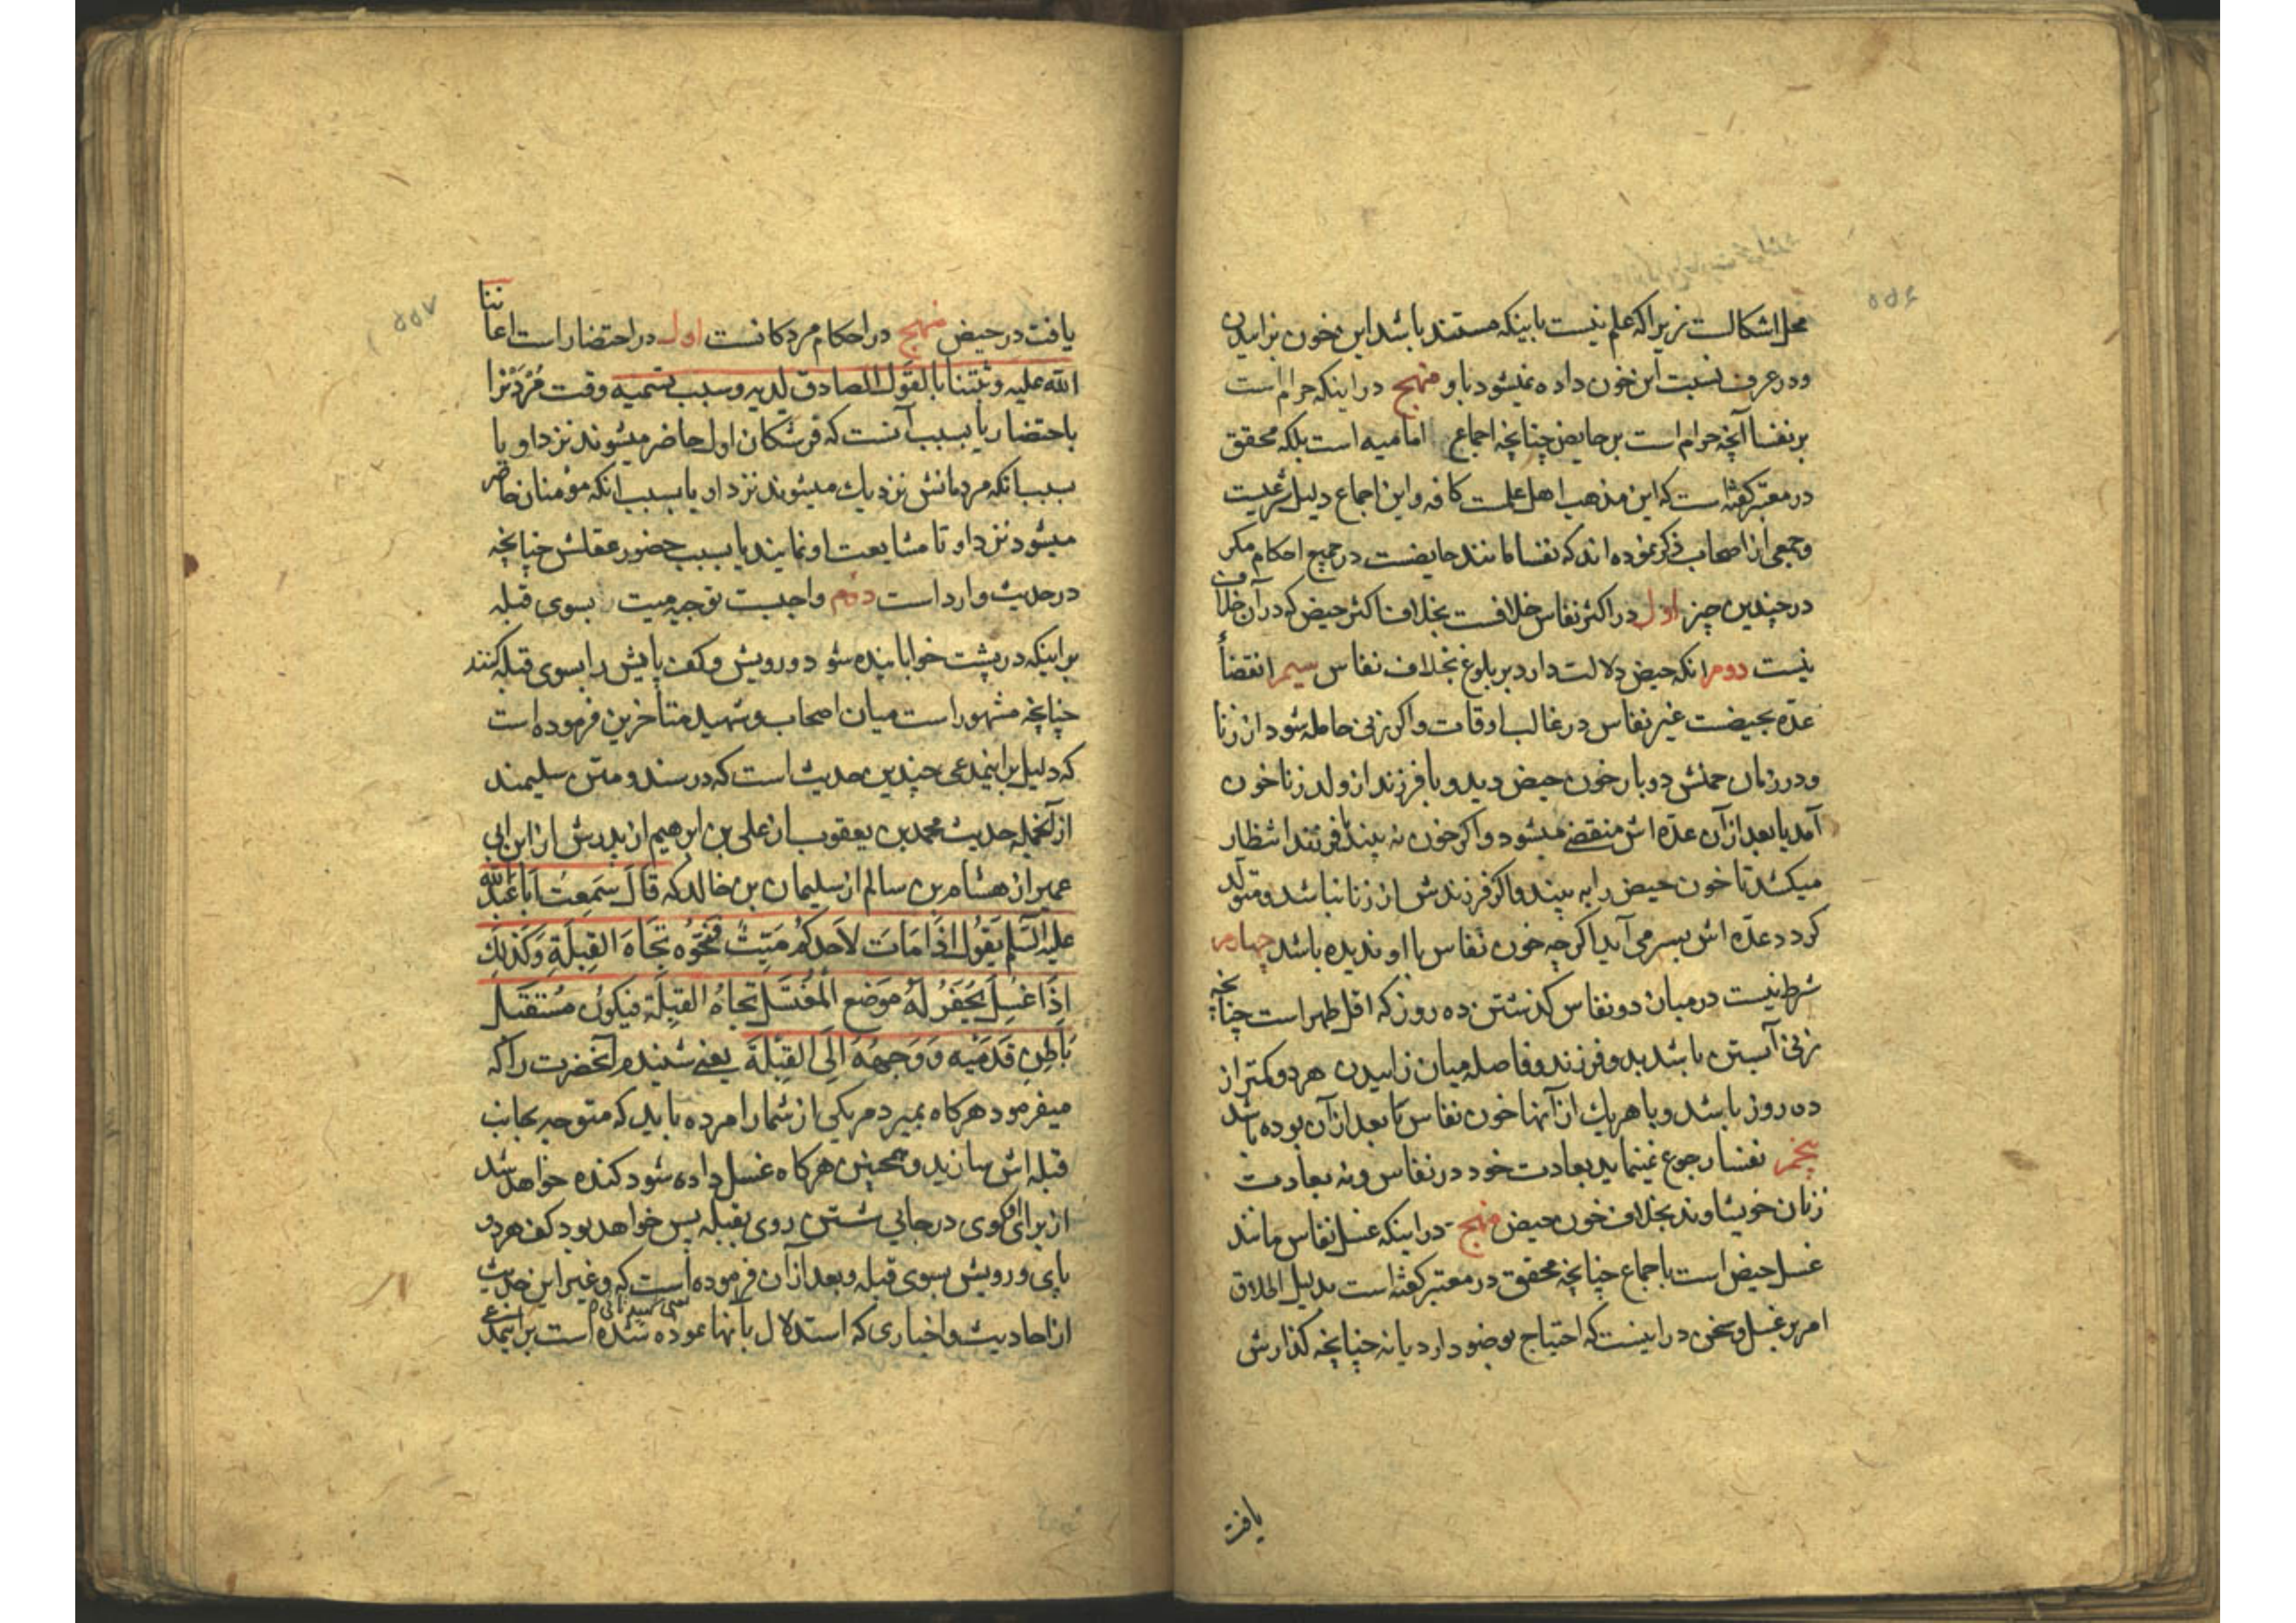 محل اشکالست زیرا که علم نیست باینکه مستند باشد این خون بزاییدن
ودر عرف نسبت این خون داده نمیشود باو منهج در اینکه حرام است
بر نفسا آنچه حرام است بر حایض چنانچه اجماع امامیه است بلکه محقق
در معتبر کفته است که این مذهب اهل علمست کافه واین اجماع دلیل شرعیست
وجمعی از اصحاب ذکر نموده اند که نفسا مانند حایضست در جمیع احکام مکر
در چندین چیز اول در اکثر نفاس خلافست بخلاف اکثر حیض که در آن خلاف
نیست دوم انکه حیض دلالت دارد بر بلوغ بخلاف نفاس سیم انقضأ
عدّه بحیضست غیر نفاس در غالب اوقات واکر زنی حامله شود از زنا
ودر زمان حملش دوبار خون حیض دید و یا فرزند از ولد زنا خون
آمد یا بعد از آن عدّه اش منقضے میشود واکر خون نه بیند با فرزند انتظار
میکشد تا خون حیض را به بیند واکر فرزندش از زنا نباشد ومتولّد
کردد عدّه اش بسر می آید اکرچه خون نفاس با او ندیده باشد چهارم
شرط نیست در میان دو نفاس کذشتن ده روز که اقل طهر است چنانچه
زنی آبستن باشد بدو فرزند و فاصله میان زاییدن هر دو کمتر از
ده روز باشد وبا هر یك از آنها خون نفاس یا بعد از آن بوده باشد
پنجم نفسا رجوع نمینماید بعادت خود در نفاس ونه بعادت
زنان خویشاوند بخلاف خون حیض منهج در اینکه غسل نفاس مانند
غسل حیض است باجماع چنانچه محقق در معتبر کفته است بدلیل اطلاق
امر بر غسل وسخن در اینست که احتیاج بوضو دارد یا نه چنانچه کذارش
یافت
یافت در حیض منهج در احکام مردکانست اول در احتضار است اعاننا
الله علیه وثبتنا بالقول الصادق لدیه وسبب تسمیه وقت مُرْدَنْ را
باحتضار یا بسبب آنست که فرشتکان اول حاضر میشوند نزد او یا
بسبب انکه مردمانش نزدیك میشوند نزد او یا بسبب انکه مؤمنان حاضر
میشود نزد او تا مشایعت او نمایند یا بسبب حضور عقلش چنانچه
در حدیث وارد است دوّم واجبست توجیه میت بسوی قبله
بر اینکه در پشت خوابانیده شود ورویش وکف پایش را بسوی قبله کنند
چنانچه مشهور است میان اصحاب وشهید متأخرین فرموده است
که دلیل بر اینمدعی چندین حدیث است که در سند ومتن سلیمند
از آنجمله حدیث محمد بن یعقوب از علی بن ابرهیم از پدرش از ابن ابی
عمیر از هشام بن سالم از سلیمان بن خالد که قَالَ سَمِعْتُ اَبَا عَبْدِ الله
علیه السّلم یَقُولُ اِذَا مَاتَ لاَحَدِکُمْ مَیِّتٌ فَنَحُّوُه تِجَاهَ القِبلَةِ وَکَذٰلِكَ
اِذَا غُسِلَ یُحْفَرُ لَهُ مَوضِع الْمُغْتَسَلِ تجاهَ القِبلَةِ فیکونُ مُسْتَقْبَلَ
بَاطِنِ قَدَمَیْه وَ وَجهِهُ اِلَی القِبْلَةِ یعنی شنیدم آنحضرت را که
میفرمود هرکاه بمیرد مریکی از شما را مرده باید که متوجه بجانب
قبله اش سازید وهمچنین هرکاه غسل داده شود کنده خواهد شد
از برای اوکوی در جانی شستن روی بقبله پس خواهد بود کف هر دو
پای ورویش بسوی قبله وبعد از آن فرموده است که وغیر این حدیث
از احادیث واخباری که استدلال بآنها نموده شده است بر اینمدعی